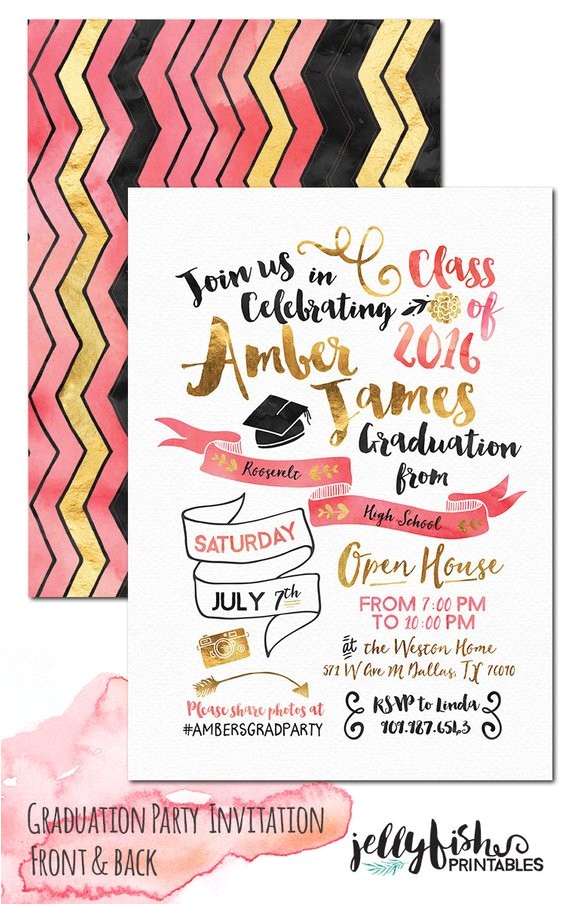 Join us in
Celebrating
Class
of
2016
Amber
James
Graduation
from
Roosevelt
High School
SATURDAY
JULY 7th
Open House
FROM 7:00 PM
TO 10:00 PM
at the Weston Home
571 W Ave M Dallas, TX 76090
Please share photos at
#AMBERSGRADPARTY
RSVP to Linda
909.987.6543
GRADUATION PARTY INVITATION
FRONT & BACK
jellyfish
PRINTABLES